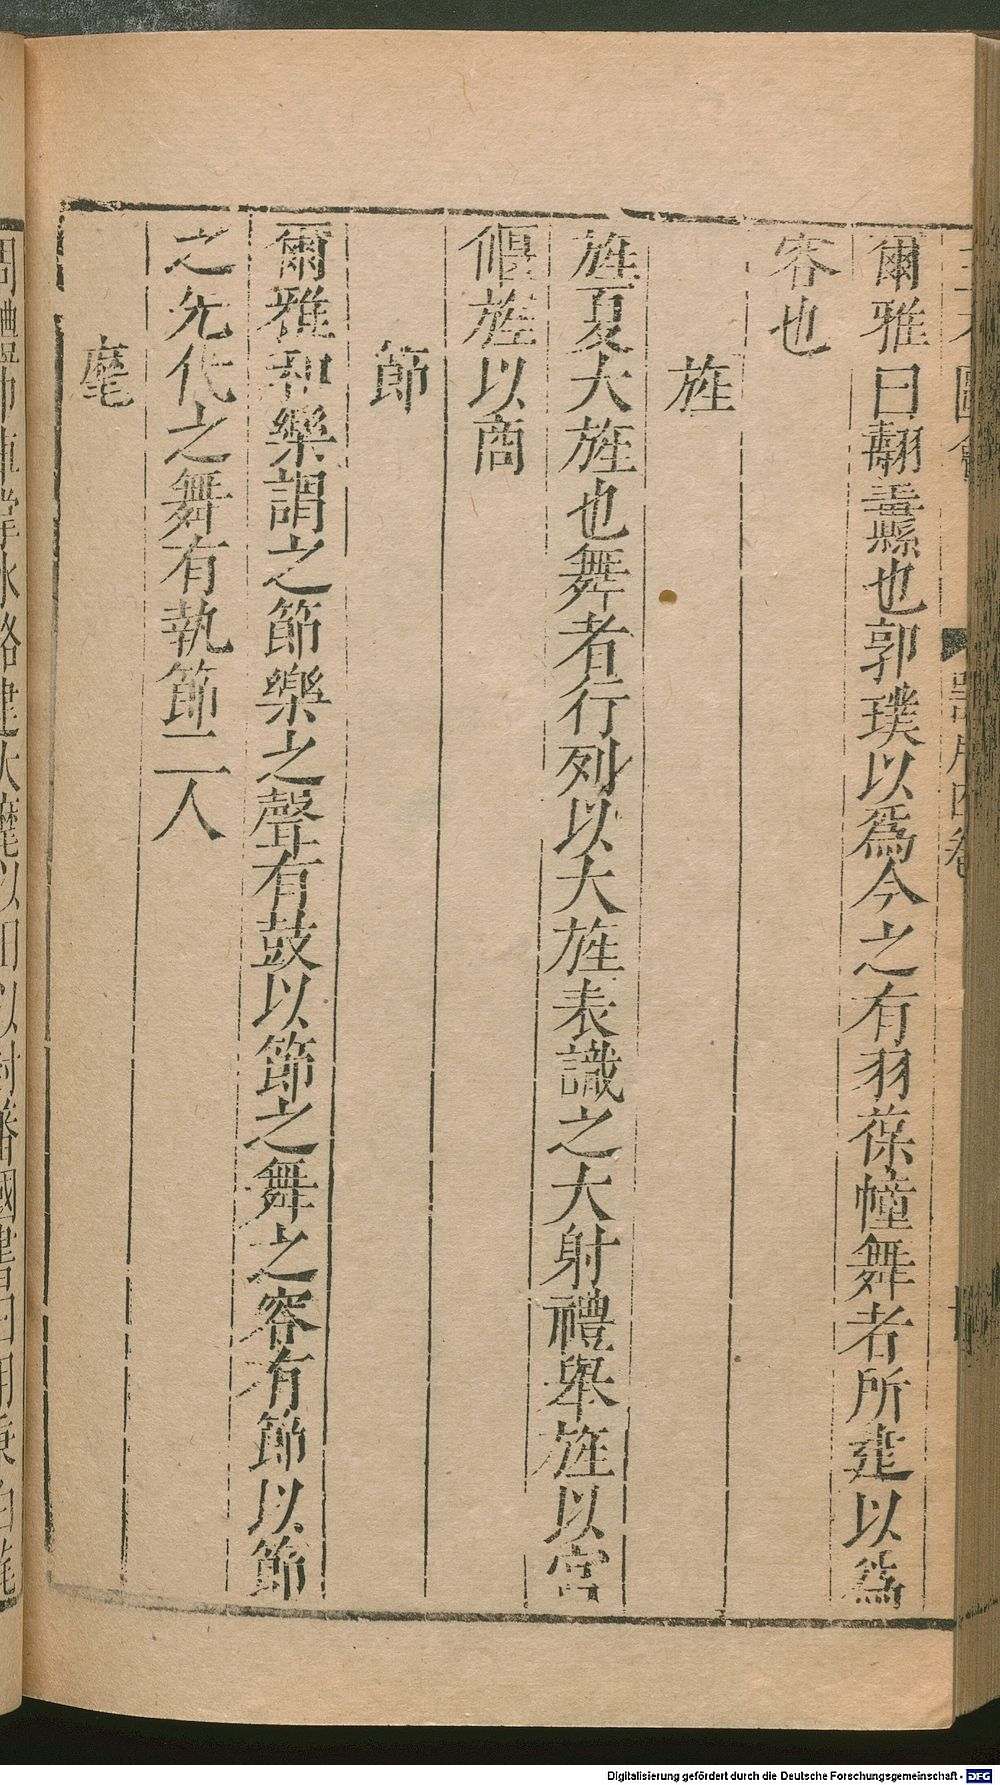 爾雅曰翿纛也郭璞以爲今之有羽葆幢舞者所建以爲
容也
旌
旌夏大旌也舞者行列以大旌表識之大射禮舉旌以宮
偃旌以商
節
爾雅和樂謂之節樂之聲有鼓以節之舞之容有節以節
之先代之舞有執節二人
麾
Digitalisierung gefördert durch die Deutsche Forschungsgemeinschaft - DFG